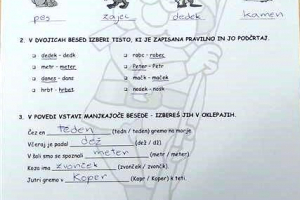 pes zajec dedek kamen
2. V DVOJICAH BESED IZBERI TISTO, KI JE ZAPISANA PRAVILNO IN JO PODČRTAJ.
dedek - dedk rabc - rabec
metr - meter Peter - Petr
danes - dans mačk - maček
hrbt - hrbet nedek - nosk
3. V POVEDI VSTAVI MANJKAJOČE BESEDE - IZBEREŠ JIH V OKLEPAJIH.
Čez en teden (tedn / teden) gremo na morje.
Včeraj je padal dež (dež / dž)
V šoli smo se spoznali meter (metr / meter)
Koza ima zvonček (zvonček / zvončk).
Jutri gremo v Koper (Kopr / Koper) k teti.